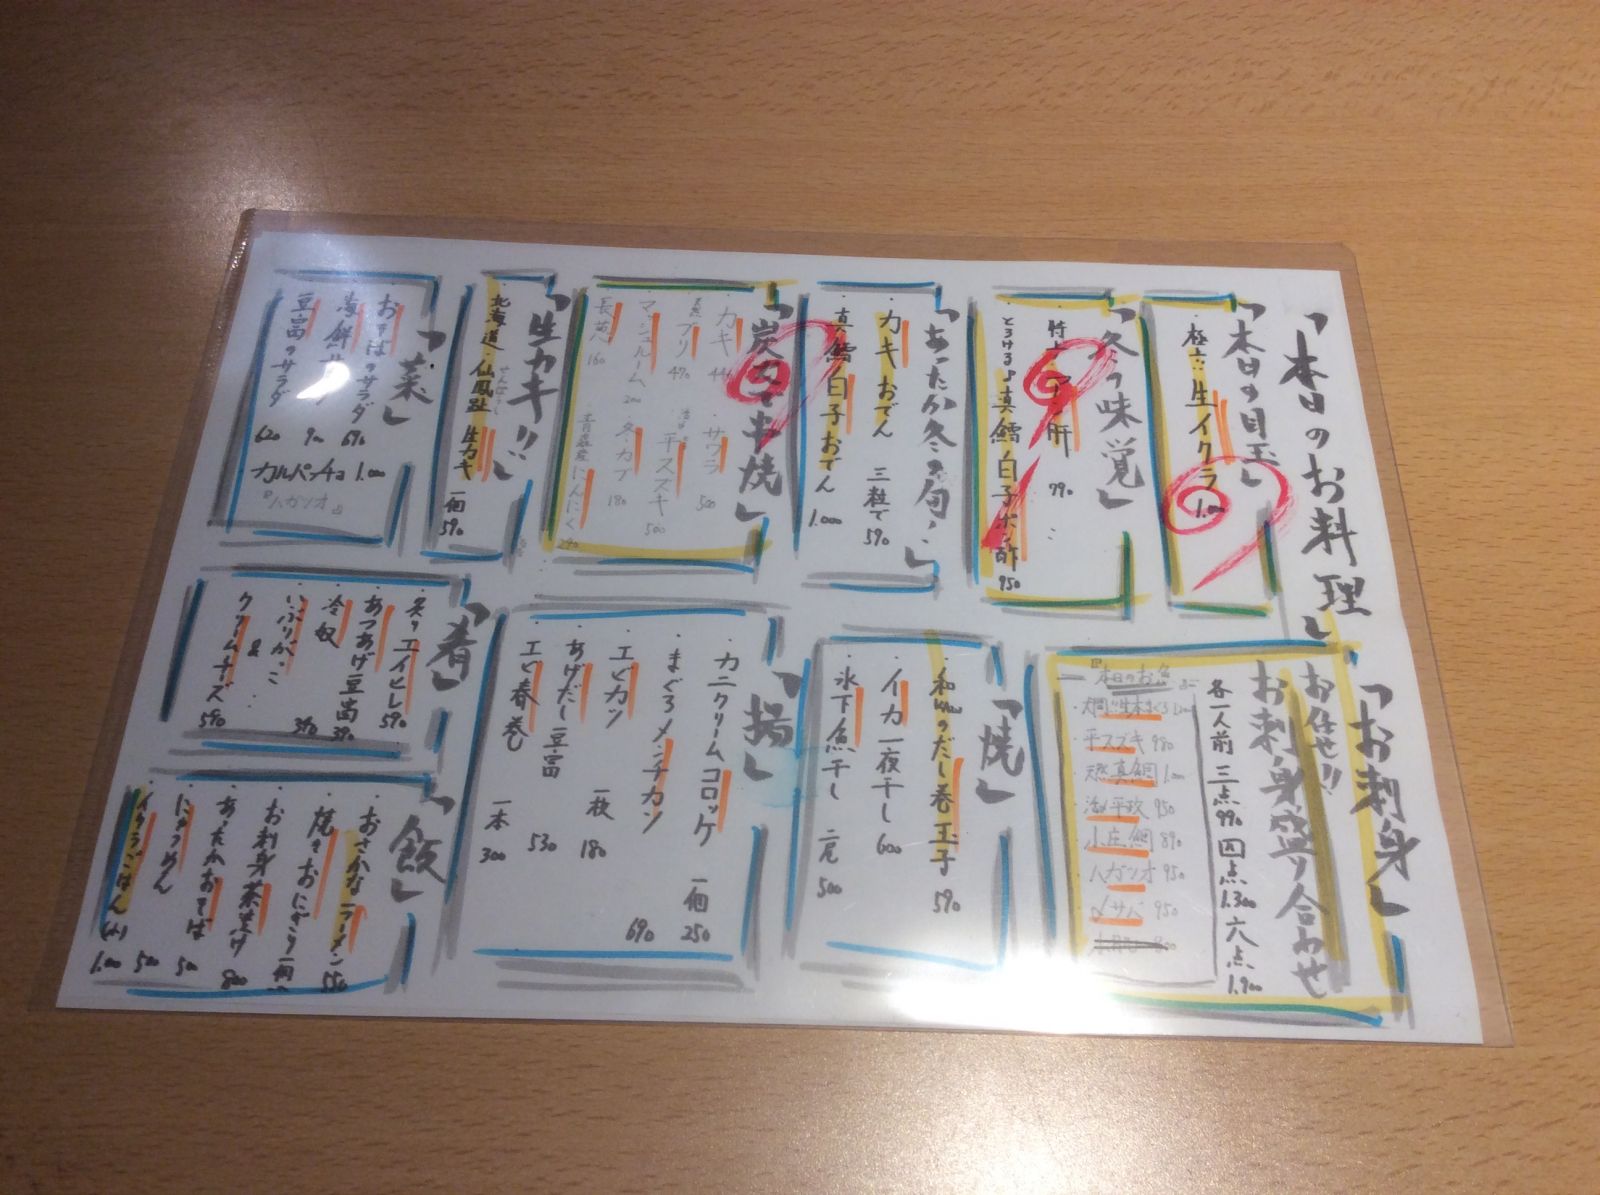 「本日のお料理」
「本日の目玉」
・極上!!生イクラ 1.000
「冬の味覚」
特上 アン肝 790
とろける♪真鱈白子ポン酢 950
「あったか冬の旬!」
・カキおでん 三粒で 590
・真鱈白子おでん 1.000
「炭火で串焼」
・カキ
・サワラ 500
ブリ 470
平スズキ 500
・マッシュルーム 200
・冬カブ 180
・長葱 160
・青森産にんにく 290
「生カキ!!」
・北海道・仙鳳趾 生カキ 一個 590
せんぽうし
「菜」
・おそばのサラダ 690
・海鮮サラダ
・豆富のサラダ 620
カルパッチョ 1.000
『ハガツオ』
「お刺身」
お任せ!!
お刺身盛り合わせ
各一人前 三点 990 四点 1.300 六点 1.900
『本日のお魚』
・平スズキ 980
・天然真鯛 1.000
・活〆平政 950
・小庄鯛 890
・ハガツオ 950
・〆サバ 950
「焼」
・和風のだし巻玉子 590
・イカ一夜干し 600
・氷下魚干し 二尾 500
「揚」
・カニクリームコロッケ 一個 250
・まぐろメンチカツ 690
・エビカツ 一枚 180
・あげだし豆富 530
・エビ春巻 一本 300
「肴」
・炙りエイヒレ 590
・あつあげ豆富 390
・冷奴 370
・いぶりがっこ
&
クリームチーズ 590
「飯」
・おさかなラーメン 550
・焼きおにぎり 一個
・お刺身茶漬け 800
・あったかおそば
・にゅうめん 500
・イクラごはん(小) 1.000